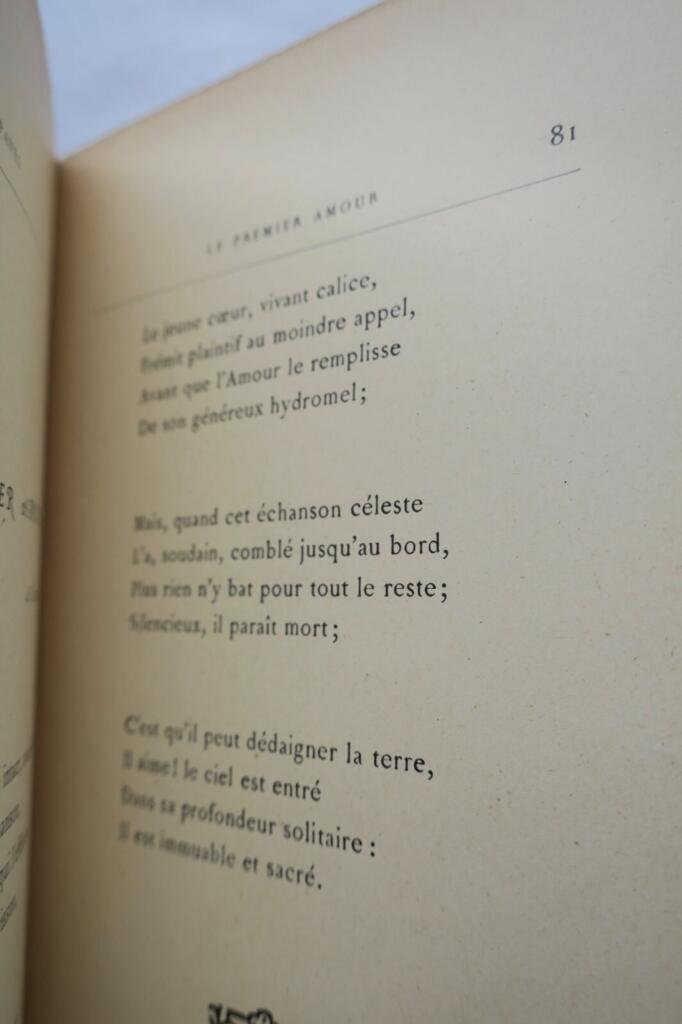 81
LE PREMIER AMOUR
Le jeune cœur, vivant calice,
Frémit plaintif au moindre appel,
Avant que l'Amour le remplisse
De son généreux hydromel;
Mais, quand cet échanson céleste
L'a, soudain, comblé jusqu'au bord,
Plus rien n'y bat pour tout le reste;
Silencieux, il paraît mort;
C'est qu'il peut dédaigner la terre,
Il aime! le ciel est entré
Dans sa profondeur solitaire :
Il est immuable et sacré.